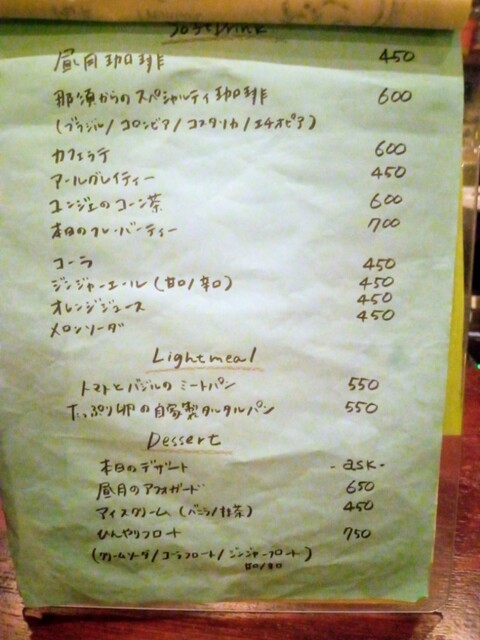 Soft Drink
昼月珈琲 450
那須からのスペシャルティ珈琲 600
(ブラジル/コロンビア/コスタリカ/エチオピア)
カフェラテ 600
アールグレイティー 450
ユンジェのコーン茶 600
本日のフレーバーティー 700
コーラ 450
ジンジャーエール(甘口/辛口) 450
オレンジジュース 450
メロンソーダ 450
Lightmeal
トマトとバジルのミートパン 550
たっぷり卵の自家製タルタルパン 550
Dessert
本日のデザート -ask-
昼月のアフォガード 650
アイスクリーム(バニラ/抹茶) 450
ひんやりフロート 750
(クリームソーダ/コーラフロート/ジンジャーフロート)
甘口/辛口